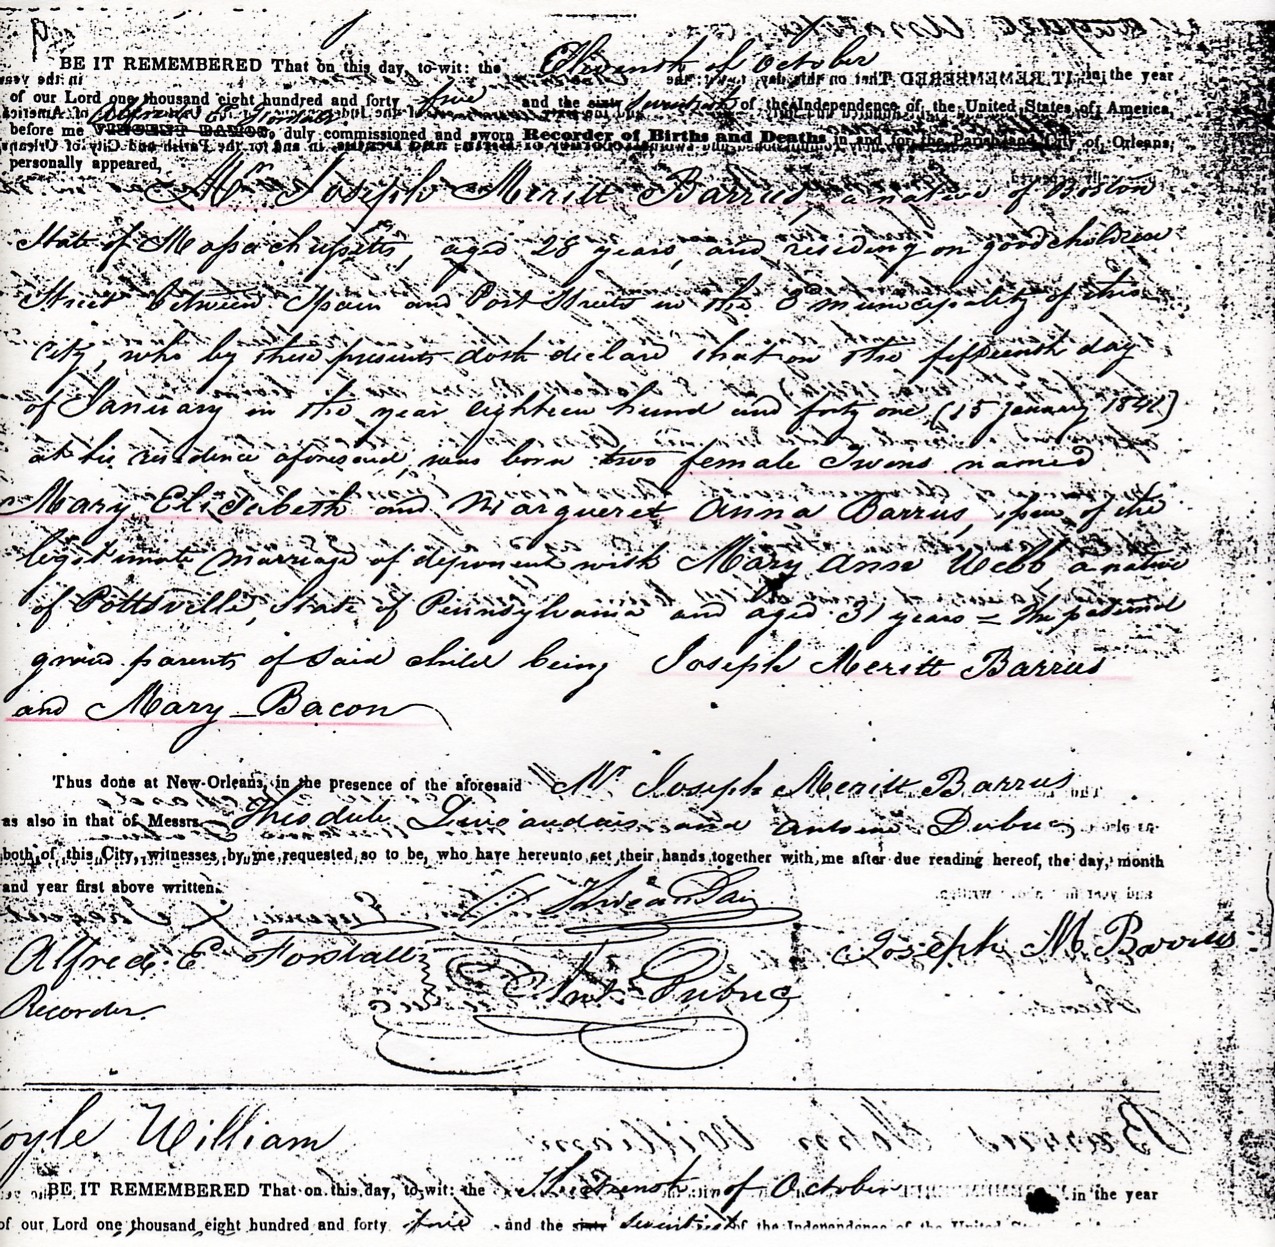 BE IT REMEMBERED That on this day, to-wit: the of October in the year
of our Lord one thousand eight hundred and forty five and the sixty seventieth of the Independence of the United States of America,
before me VINCENT RAMOS, duly commissioned and sworn Recorder of Births and Deaths in and for the Parish and City of Orleans,
personally appeared,
Mr. Joseph Meritt Barrus, a native of Boston
State of Massachusetts, aged 28 years, and residing on goodchildren
Street between Spain and Port Streets in the 3 municipality of this
City, who by these presents doth declare that on the fifteenth day
of January in the year eighteen hund and forty one (15 January 1841)
at his residence aforesaid, was born two female Twins named
Mary Elizabeth and Margueret Anna Barrus, issue of the
legitimate marriage of deponent with Mary Ann Webb a native
of Pottsville, State of Pennsylvania and aged 31 years = The paternal
grand parents of said child being Joseph Meritt Barrus
and Mary Bacon
Thus done at New-Orleans, in the presence of the aforesaid Mr. Joseph Meritt Barrus
as also in that of Messrs. Theodule and Antoine Dubuc
both of this City, witnesses, by me requested so to be, who have hereunto set their hands together with me after due reading hereof, the day, month
and year first above written.
Alfred E Forstall Ant. Dubuc Joseph M. Barrus
Recorder.
oyle William
BE IT REMEMBERED That on this day, to-wit: the of October in the year
of our Lord one thousand eight hundred and forty five and the sixty seventieth of the Independence of the United States of America